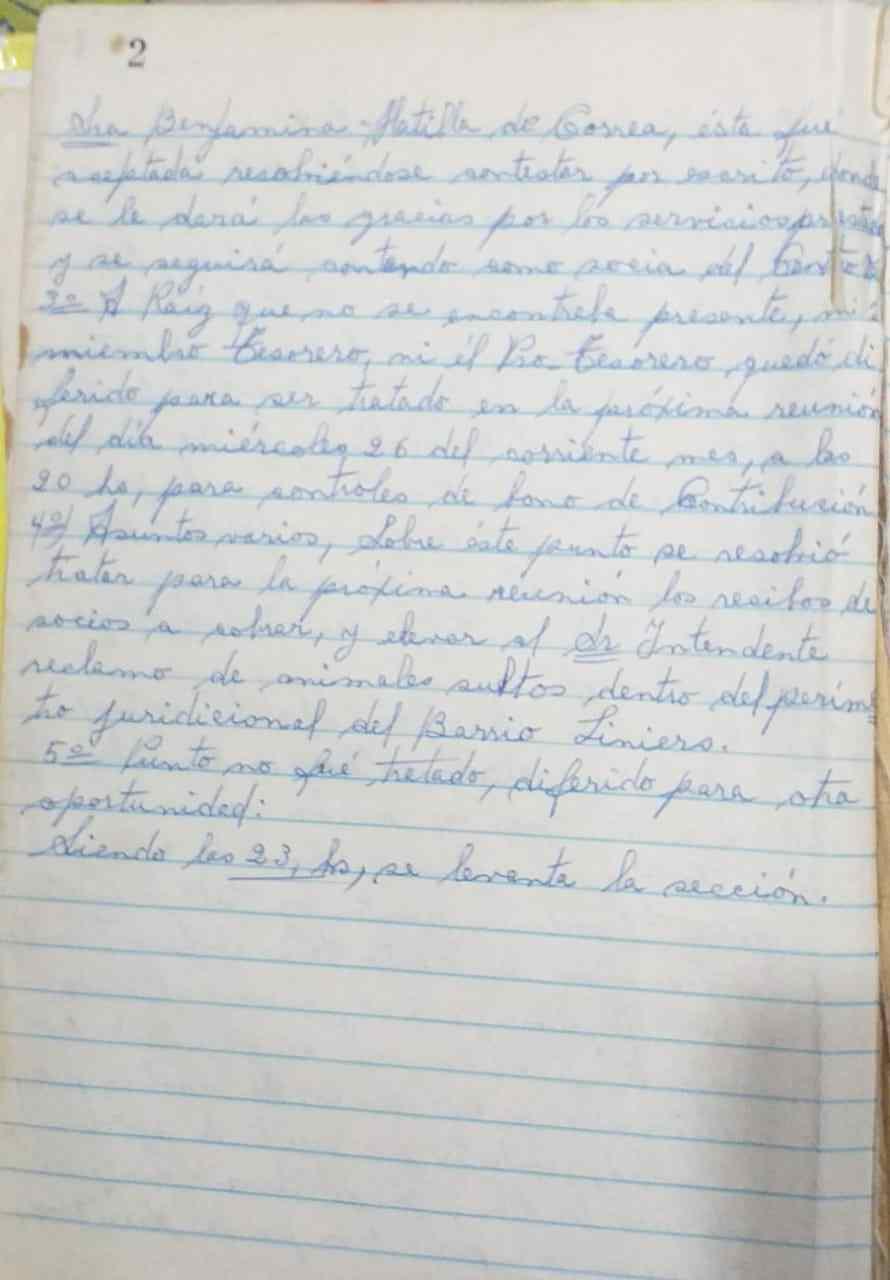 2
Sra Benjamina Matilla de Correa, ésta fué
aceptada resolviéndose contestar por escrito, donde
se le dará las gracias por los servicios
y se seguirá contando como socia del Centro
3º A Raiz que no se encontraba presente, ni
miembro Tesorero, ni él Pro-Tesorero, quedó di
ferido para ser tratado en la próxima reunión
del día miércoles 26 del corriente mes, a las
20 hs, para controles de bono de Contribución
4º) Asuntos varios, Sobre éste punto se resolvió
tratar para la próxima reunión los recibos de
socios a cobrar, y elevar al Sr Intendente
reclamo de animales sultos dentro del períme=
tro juridicional del Barrio Liniers.
5º Punto no fué tratado, diferido para otra
oportunidad:
Siendo las 23, hs, se levanta la sección.